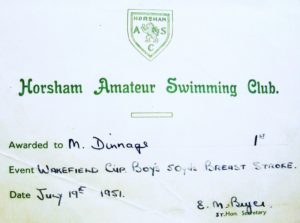 HORSHAM
A S
C
Horsham Amateur Swimming Club.
Awarded to M. Dinnage 1st
Event WAKEFIELD CUP BOY'S 50 yds BREAST STROKE.
Date July 19th 1951.
E. M.
Hon. Secretary